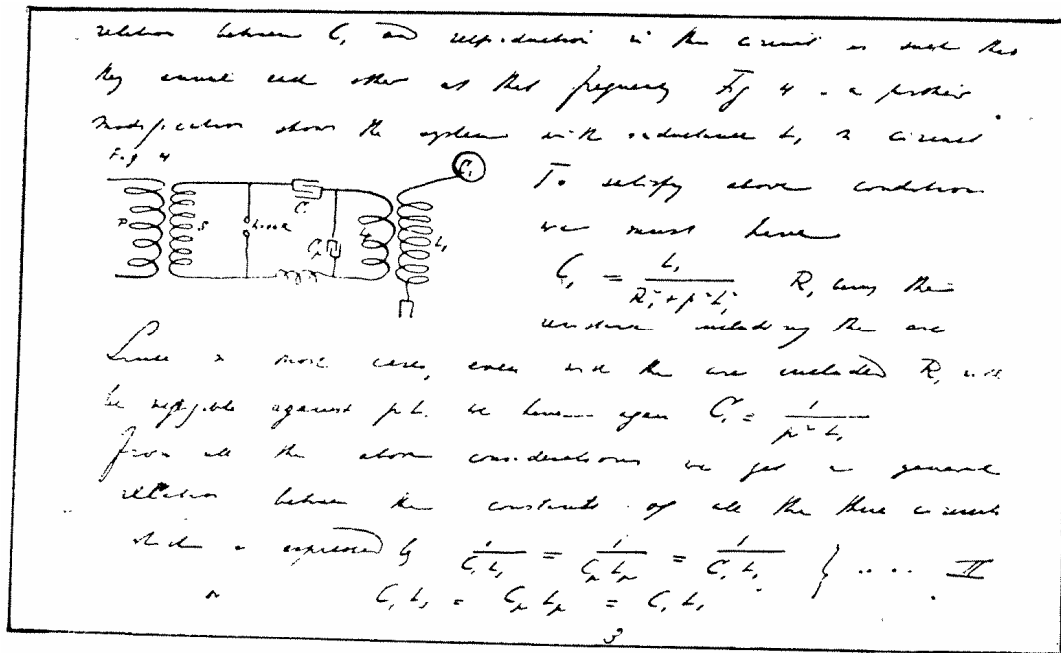 relation between C₁ and selfinduction in the circuit is such that
they annul each other at that frequency Fig 4 - a further
modification shows the system with inductance L₁ in circuit
Fig 4
C₁
To satisfy above condition
P S C L₁
we must have
Cₚ
C₁ = L₁ / (R₁² + p² L₁²) R₁ being the
resistance including the arc
Since in most cases, even with the arc included R₁ will
be negligible against pL we have again C₁ = 1 / (p² L₁)
From all the above considerations we get a general
relation between the constants of all the three circuits
which is expressed by 1 / (C₁ L₁) = 1 / (Cₚ Lₚ) = 1 / (C₁ L₁) } .... II
C₁ L₁ = Cₚ Lₚ = C₁ L₁
3